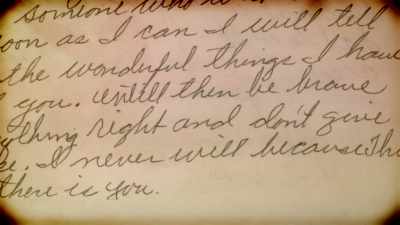 someone who is
soon as I can I will tell
the wonderful things I have
you. Untill then be brave
thing right and don't give
I never will because
there is you.